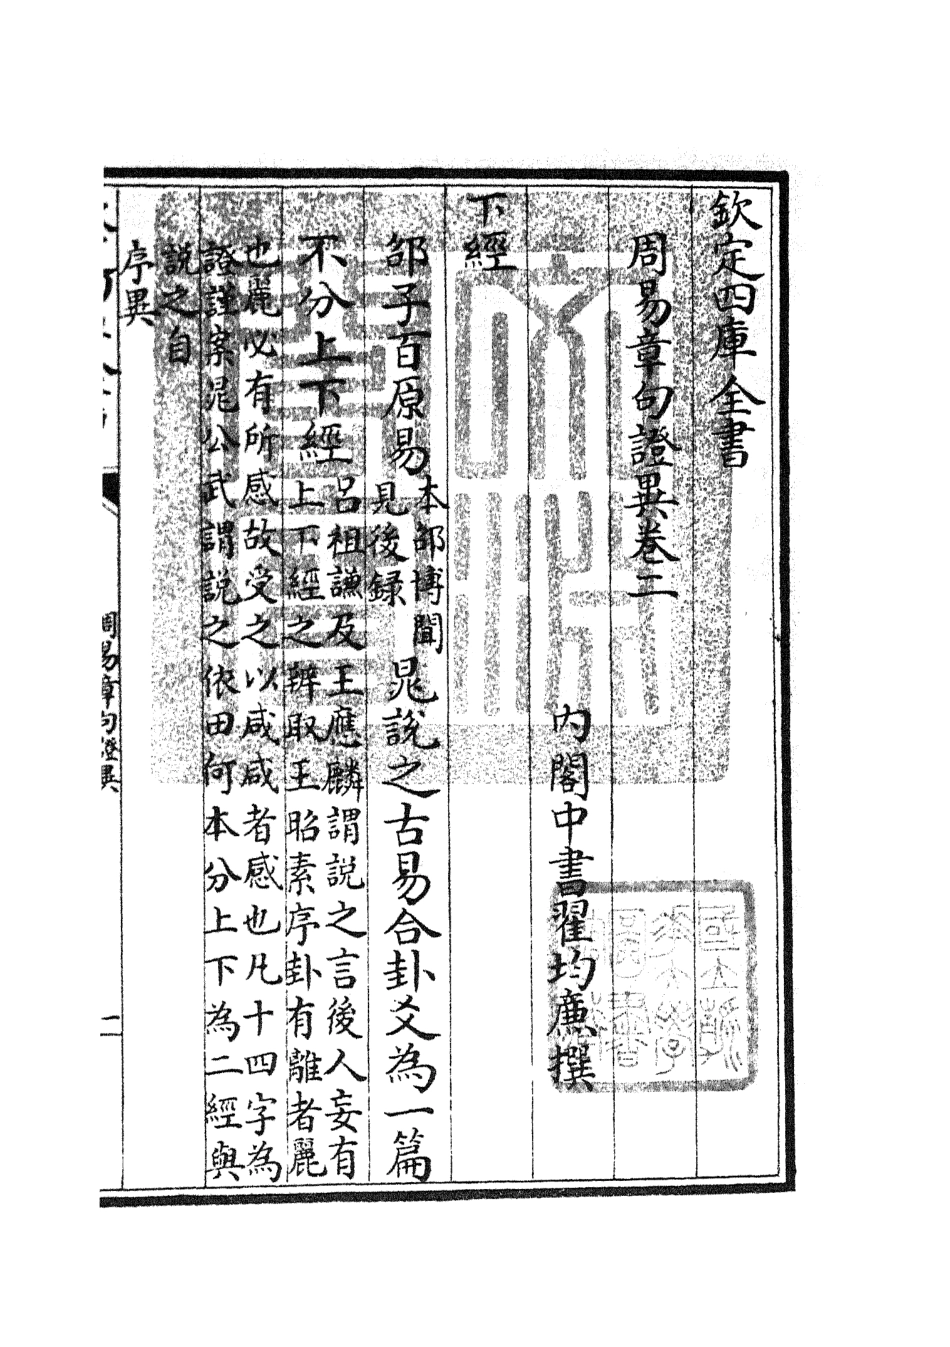 欽定四庫全書
周易章句證異卷二
內閣中書翟均廉撰
下經
邵子百原易本邵博聞見後録晁說之古易合卦爻為一篇
不分上下經呂祖謙及王應麟謂說之言後人妄有
上下經之辨取王昭素序卦有離者麗
也麗必有所感故受之以咸咸者感也凡十四字為
證謹案晁公武謂說之依田何本分上下為二經與
說之自
序異
周易章句證異